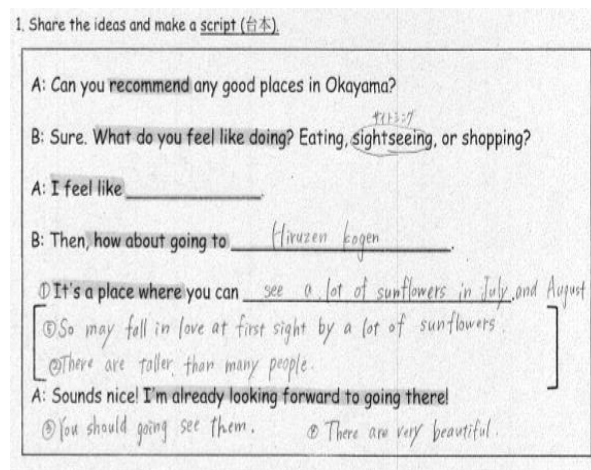 1. Share the ideas and make a script (台本).
A: Can you recommend any good places in Okayama?
サイトシーング
B: Sure. What do you feel like doing? Eating, sightseeing, or shopping?
A: I feel like ____________.
B: Then, how about going to Hiruzen kogen.
① It's a place where you can see a lot of sunflowers in July, and August
⑤ So may fall in love at first sight by a lot of sunflowers.
② There are taller than many people.
A: Sounds nice! I'm already looking forward to going there!
③ You should going see them.
④ There are very beautiful.